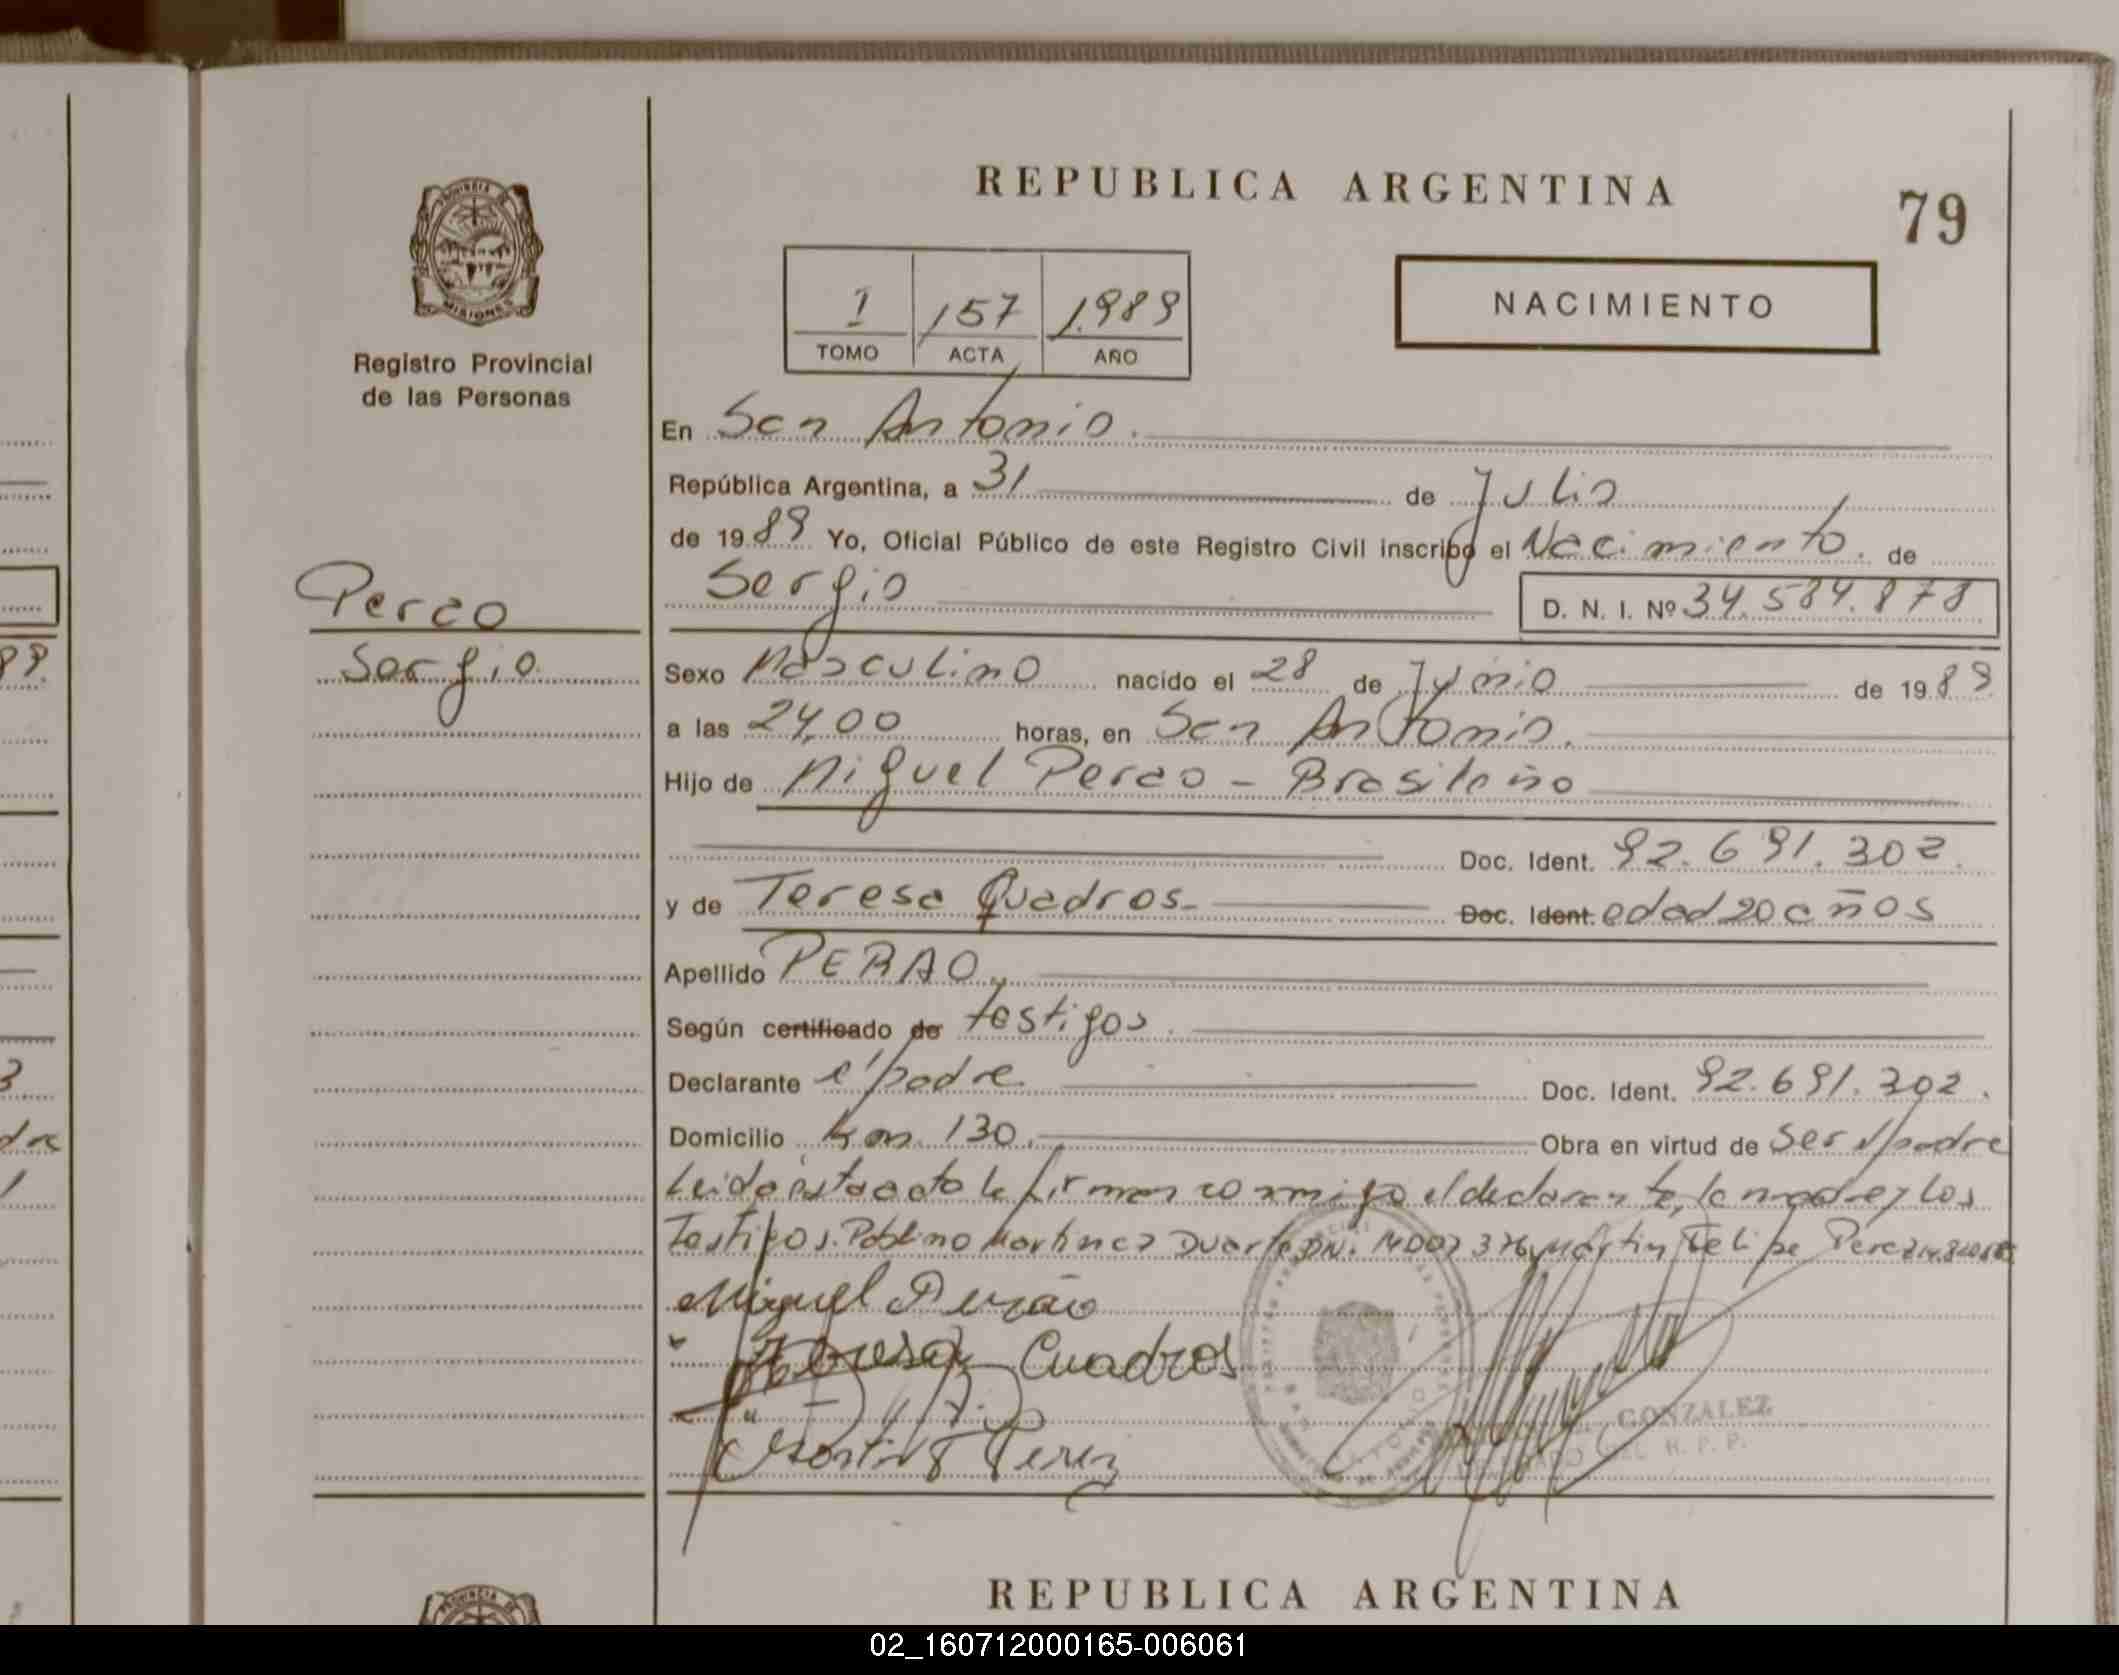 REPUBLICA ARGENTINA
79
PROVINCIA DE
MISIONES
Registro Provincial
de las Personas
I 157 1989
TOMO ACTA AÑO
NACIMIENTO
En San Antonio.
República Argentina, a 31 de Julio
de 1989 Yo, Oficial Público de este Registro Civil inscribo el Nacimiento. de
Sergio D. N. I. Nº 34.584.878
Perao
Sergio
Sexo Masculino nacido el 28 de Junio de 1989
a las 24,00 horas, en San Antonio.
Hijo de Miguel Perao - Brasileño
Doc. Ident. 92.691.302.
y de Teresa Quadros- Doc. Ident. edad 20 años
Apellido PERAO.
Según certificado de testigos.
Declarante el padre. Doc. Ident. 92.691.302.
Domicilio km. 130. Obra en virtud de ser el padre
Leida esta acta la firman conmigo el declarante, la madre y los
Testigos. Martinez Duarte DN. Martin Felipe Perez
Miguel Perão
Teresa Cuadros
Martin F Perez
GONZALEZ
DEL R. P. P.
REPUBLICA ARGENTINA
PROVINCIA DE
02_160712000165-006061